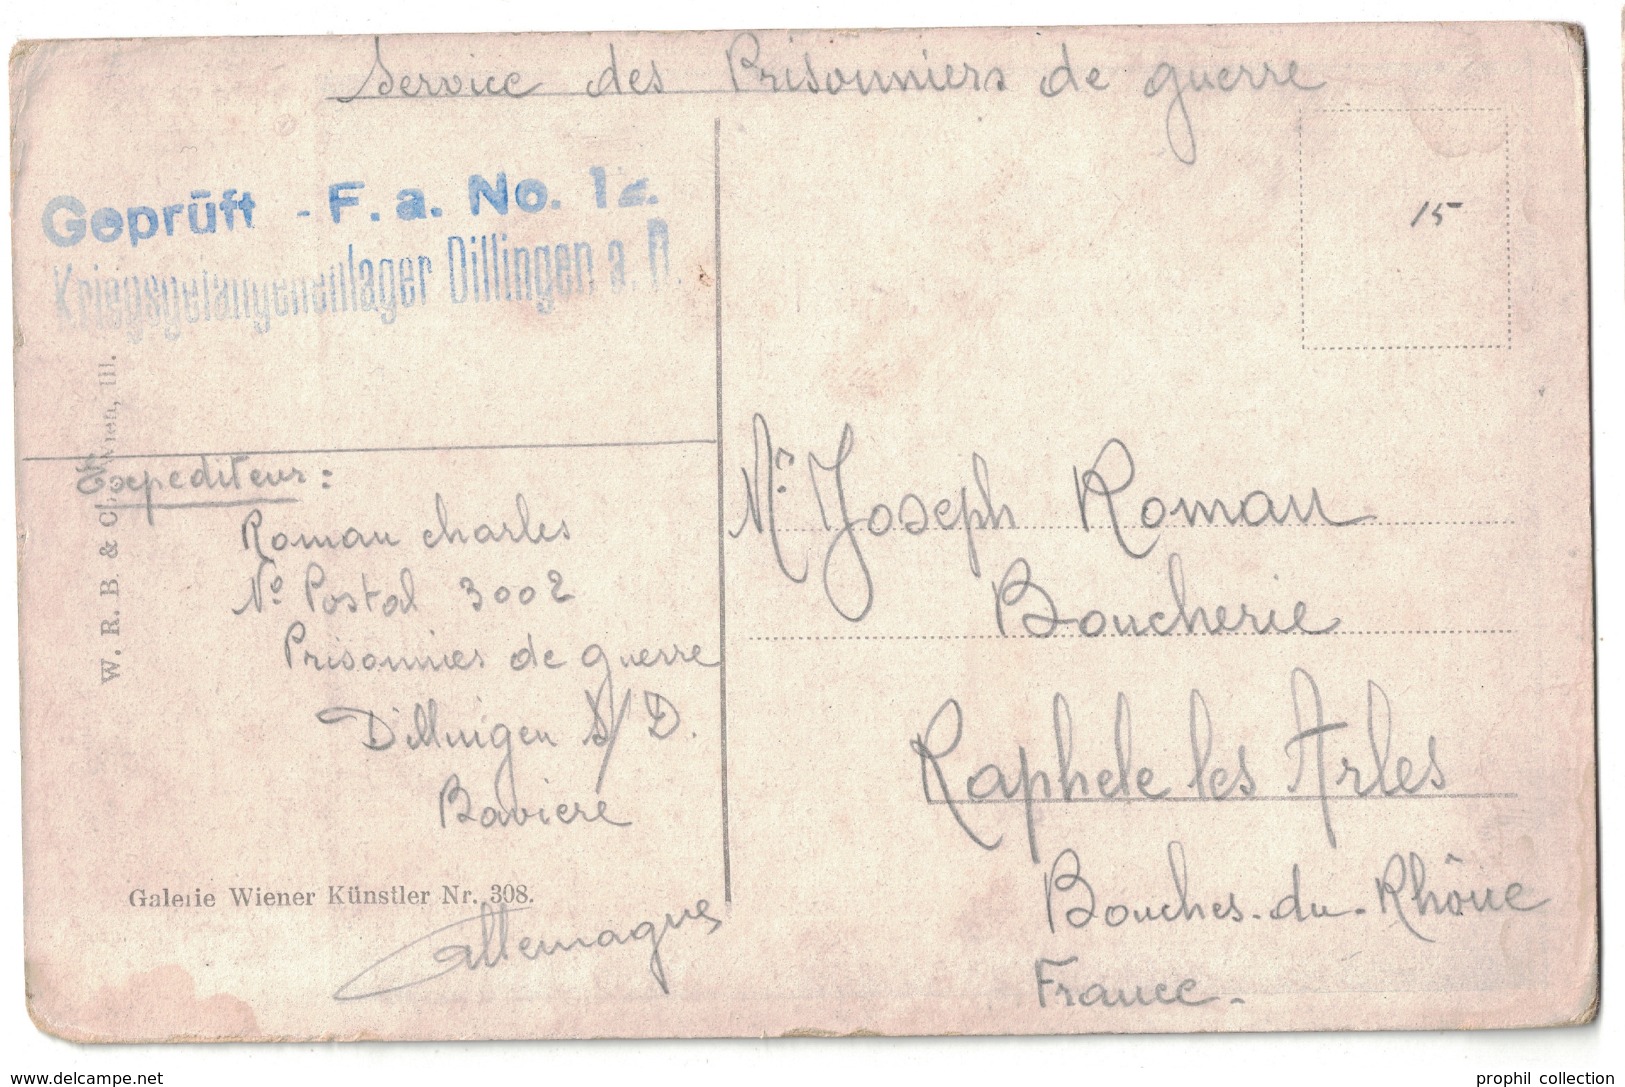 Service des Prisonniers de guerre
15
Geprüft - F. a. No. 12.
Kriegsgefangenenlager Dillingen a. D.
W. R. B. & Co, Wien, III.
Expediteur :
Roman charles
No Postal 3002
Prisonnies de guerre
Dillingen S/D.
Baviere
Allemagne
Galerie Wiener Künstler Nr. 308.
Mr. Joseph Roman
Boucherie
Raphele les Arles
Bouches-du-Rhône
France -
www.delcampe.net
prophil collection